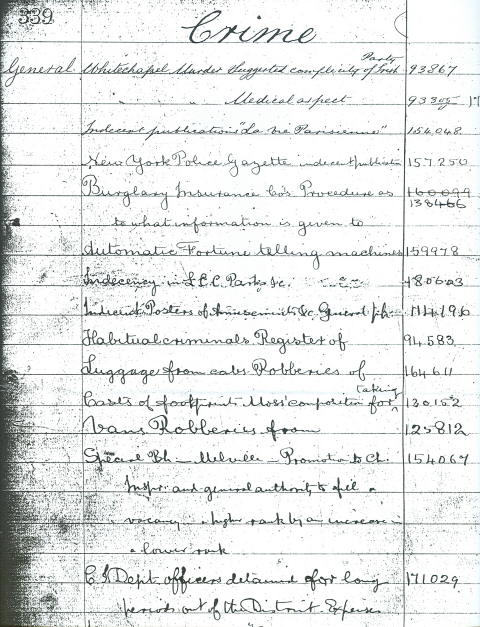 339
Crime
General Whitechapel Murder Suggested complicity of Irish Party 93867
" " " Medical aspect 93305
Indecent publication "La Vie Parisienne" 154048
New York Police Gazette indecent publication 157250
Burglary Insurance Co's Procedure as 160099
138466
to what information is given to
Automatic Fortune telling machines 159978
Indecency in L.C.C. Parks &c. 480603
Indecent Posters of Amusements &c. General 114196
Habitual criminals. Register of 94583
Luggage from cabs Robberies of 164611
Casts of footprints Moss' composition for taking 130152
Vans Robberies from 125812
Special Bh. — Melville — Promotion to Ch. 154067
Inspr. and general authority to fill a
vacancy in a higher rank by an increase in
a lower rank
C.I. Dept. officers detained for long 171029
periods out of the District Expenses